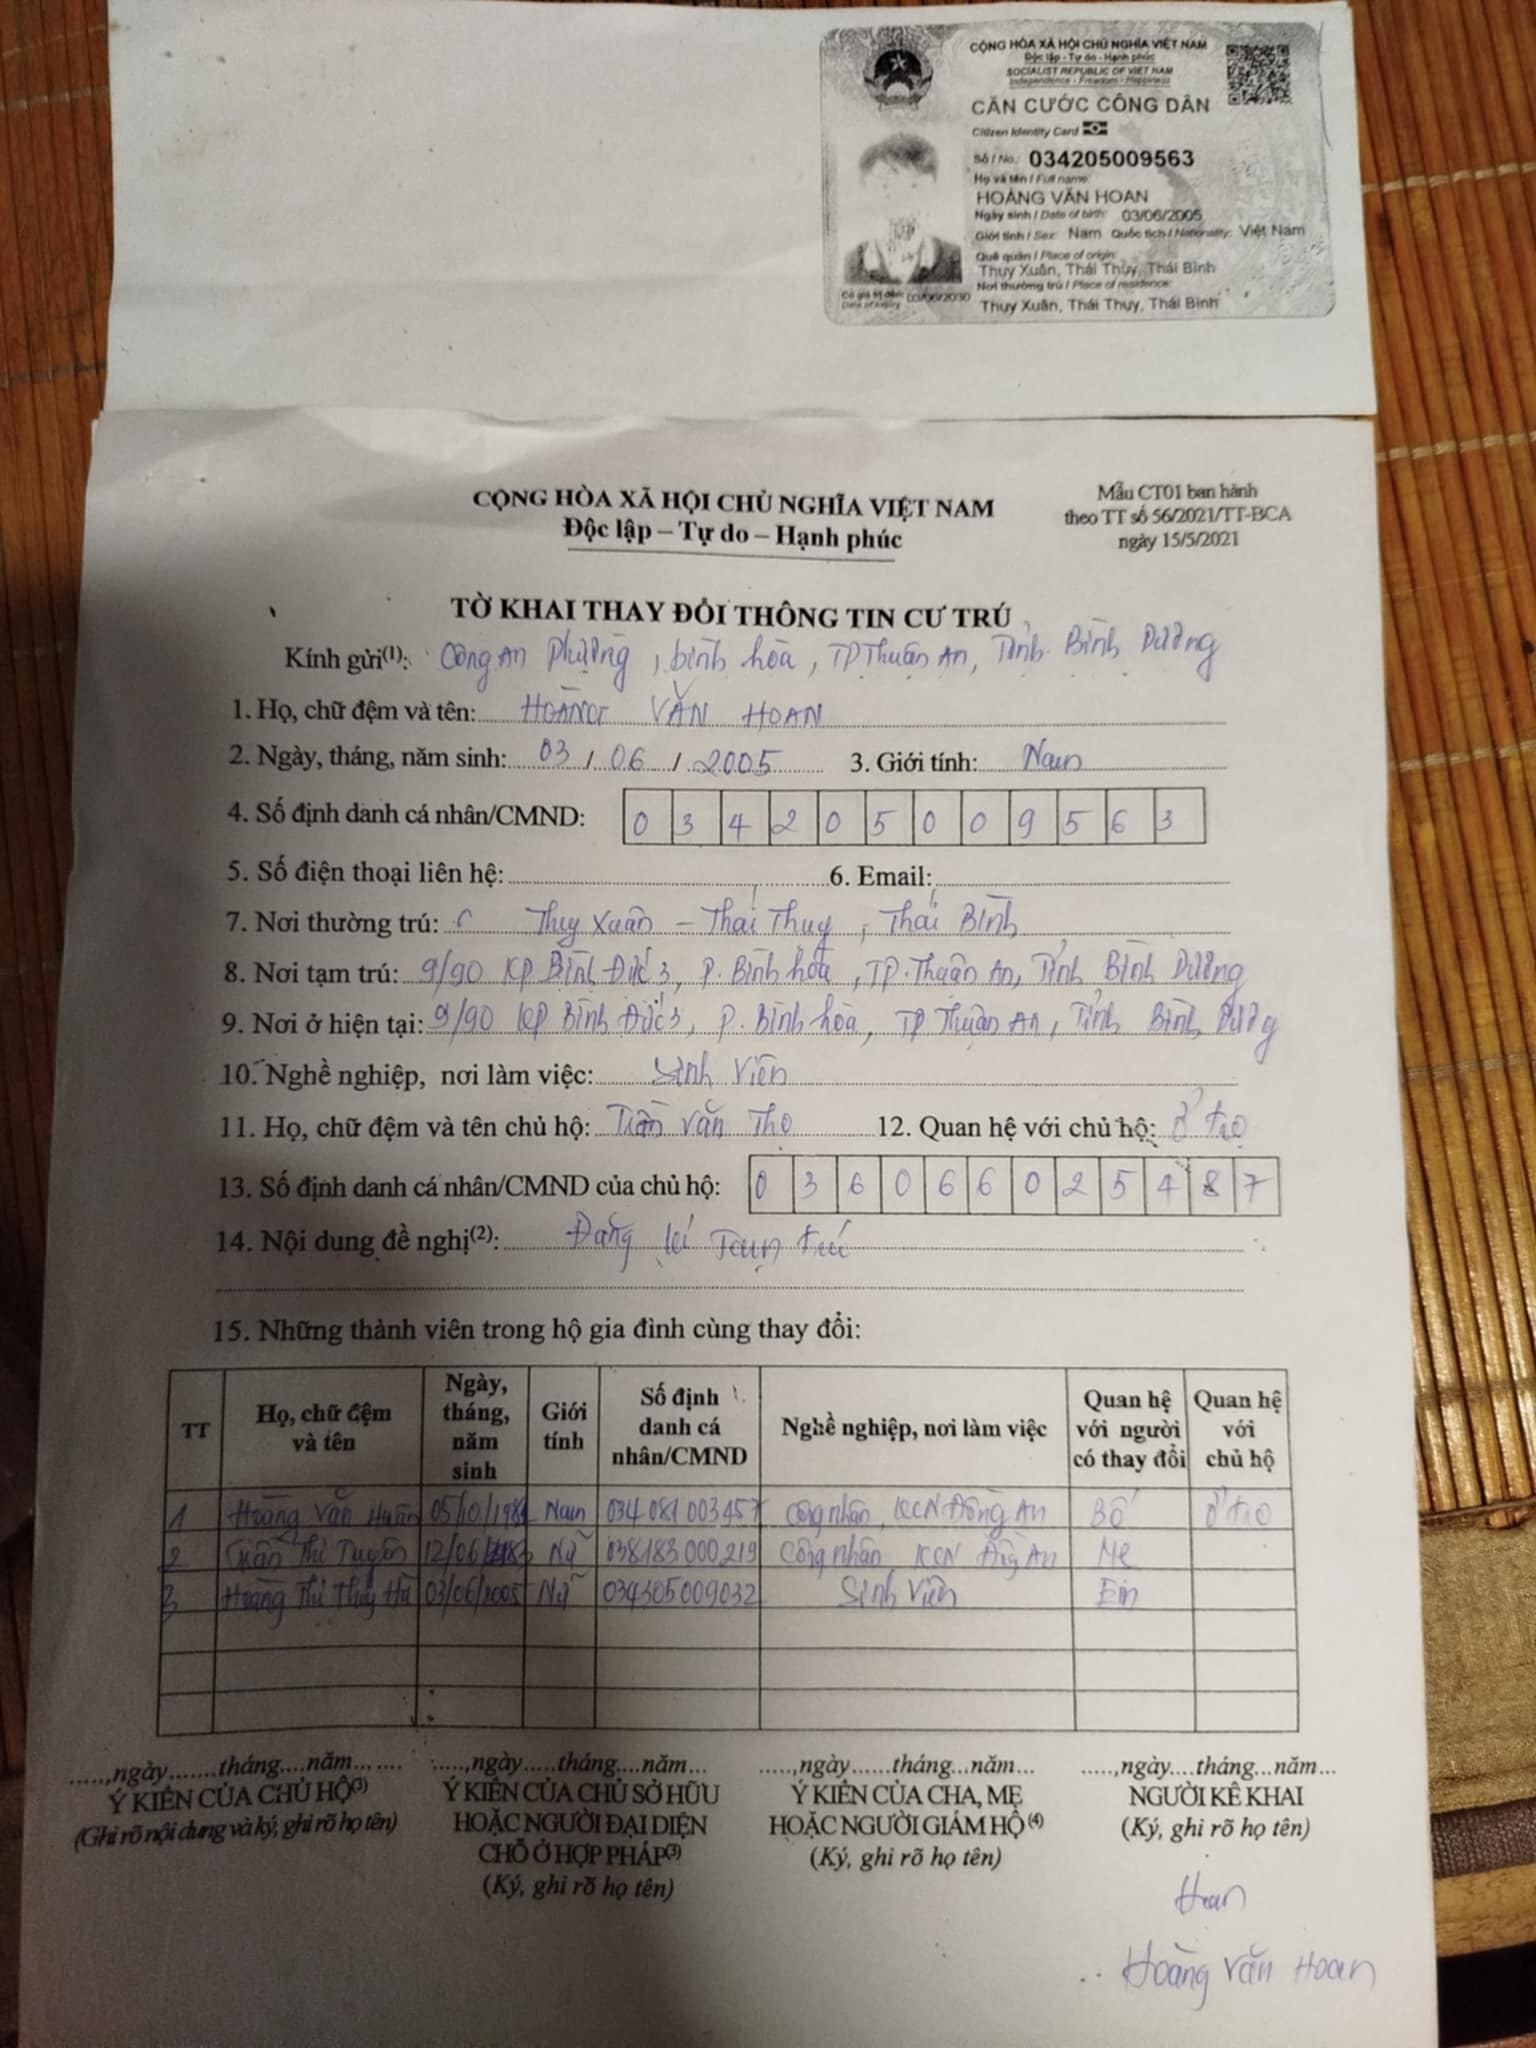 CỘNG HÒA XÃ HỘI CHỦ NGHĨA VIỆT NAM
Độc lập - Tự do - Hạnh phúc
SOCIALIST REPUBLIC OF VIET NAM
Independence - Freedom - Happiness
CĂN CƯỚC CÔNG DÂN
Citizen Identity Card
Số / No.: 034205009563
Họ và tên / Full name:
HOÀNG VĂN HOAN
Ngày sinh / Date of birth: 03/06/2005
Giới tính / Sex: Nam Quốc tịch / Nationality: Việt Nam
Quê quán / Place of origin:
Thụy Xuân, Thái Thụy, Thái Bình
Nơi thường trú / Place of residence:
Thụy Xuân, Thái Thụy, Thái Bình
Có giá trị đến: 03/06/2030
Date of expiry
Mẫu CT01 ban hành
theo TT số 56/2021/TT-BCA
ngày 15/5/2021
CỘNG HÒA XÃ HỘI CHỦ NGHĨA VIỆT NAM
Độc lập – Tự do – Hạnh phúc
TỜ KHAI THAY ĐỔI THÔNG TIN CƯ TRÚ
Kính gửi(1): Công An Phường, bình hòa, TP Thuận An, Tỉnh Bình Dương
1. Họ, chữ đệm và tên: HOÀNG VĂN HOAN
2. Ngày, tháng, năm sinh: 03 / 06 / 2005 3. Giới tính: Nam
4. Số định danh cá nhân/CMND: 0 3 4 2 0 5 0 0 9 5 6 3
5. Số điện thoại liên hệ: 6. Email:
7. Nơi thường trú: Thụy Xuân - Thái Thụy, Thái Bình
8. Nơi tạm trú: 9/90 KP Bình Đức 3, P. Bình hòa, TP. Thuận An, Tỉnh Bình Dương
9. Nơi ở hiện tại: 9/90 KP Bình Đức 3, P. Bình hòa, TP Thuận An, Tỉnh Bình Dương
10. Nghề nghiệp, nơi làm việc: Sinh Viên
11. Họ, chữ đệm và tên chủ hộ: Văn Thọ 12. Quan hệ với chủ hộ: ở trọ
13. Số định danh cá nhân/CMND của chủ hộ: 0 3 6 0 6 6 0 2 5 4 8 7
14. Nội dung đề nghị(2): Đăng kí Tạm trú
15. Những thành viên trong hộ gia đình cùng thay đổi:
TT Họ, chữ đệm và tên Ngày, tháng, năm sinh Giới tính Số định danh cá nhân/CMND Nghề nghiệp, nơi làm việc Quan hệ với người có thay đổi Quan hệ với chủ hộ
1 Hoàng Văn Huân 05/10/1981 Nam 034081003457 Công nhân, KCN Đồng An Bố ở trọ
2 Trần Thị Tuyên 12/06/1983 Nữ 038183000219 Công nhân KCN Đồng An Mẹ
3 Hoàng Thị Thúy Hà 03/06/2005 Nữ 034305009032 Sinh Viên Em
.....,ngày.......tháng....năm.......
Ý KIẾN CỦA CHỦ HỘ(3)
(Ghi rõ nội dung và ký, ghi rõ họ tên)
.....,ngày.....tháng....năm...
Ý KIẾN CỦA CHỦ SỞ HỮU
HOẶC NGƯỜI ĐẠI DIỆN
CHỖ Ở HỢP PHÁP(3)
(Ký, ghi rõ họ tên)
.....,ngày......tháng...năm...
Ý KIẾN CỦA CHA, MẸ
HOẶC NGƯỜI GIÁM HỘ (4)
(Ký, ghi rõ họ tên)
.....,ngày....tháng...năm...
NGƯỜI KÊ KHAI
(Ký, ghi rõ họ tên)
Hoan
Hoàng Văn Hoan